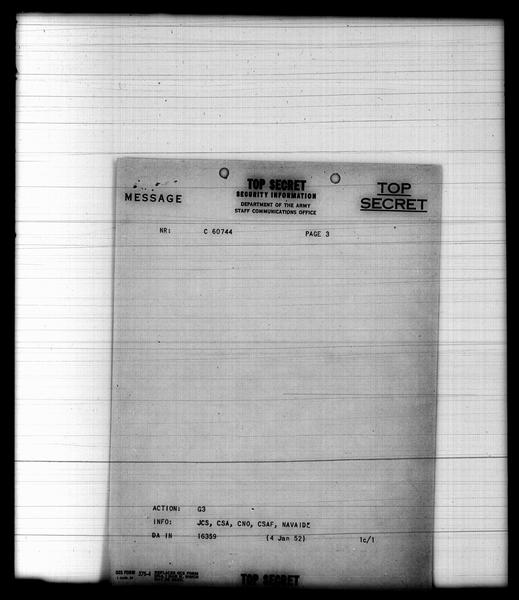 TOP SECRET
SECURITY INFORMATION
DEPARTMENT OF THE ARMY
STAFF COMMUNICATIONS OFFICE
MESSAGE
TOP
SECRET
NR: C 60744 PAGE 3
ACTION: G3
INFO: JCS, CSA, CNO, CSAF, NAVAIDE
DA IN 16359 (4 Jan 52) 1c/1
OCS FORM 375-4
REPLACES OCS FORM
TOP SECRET